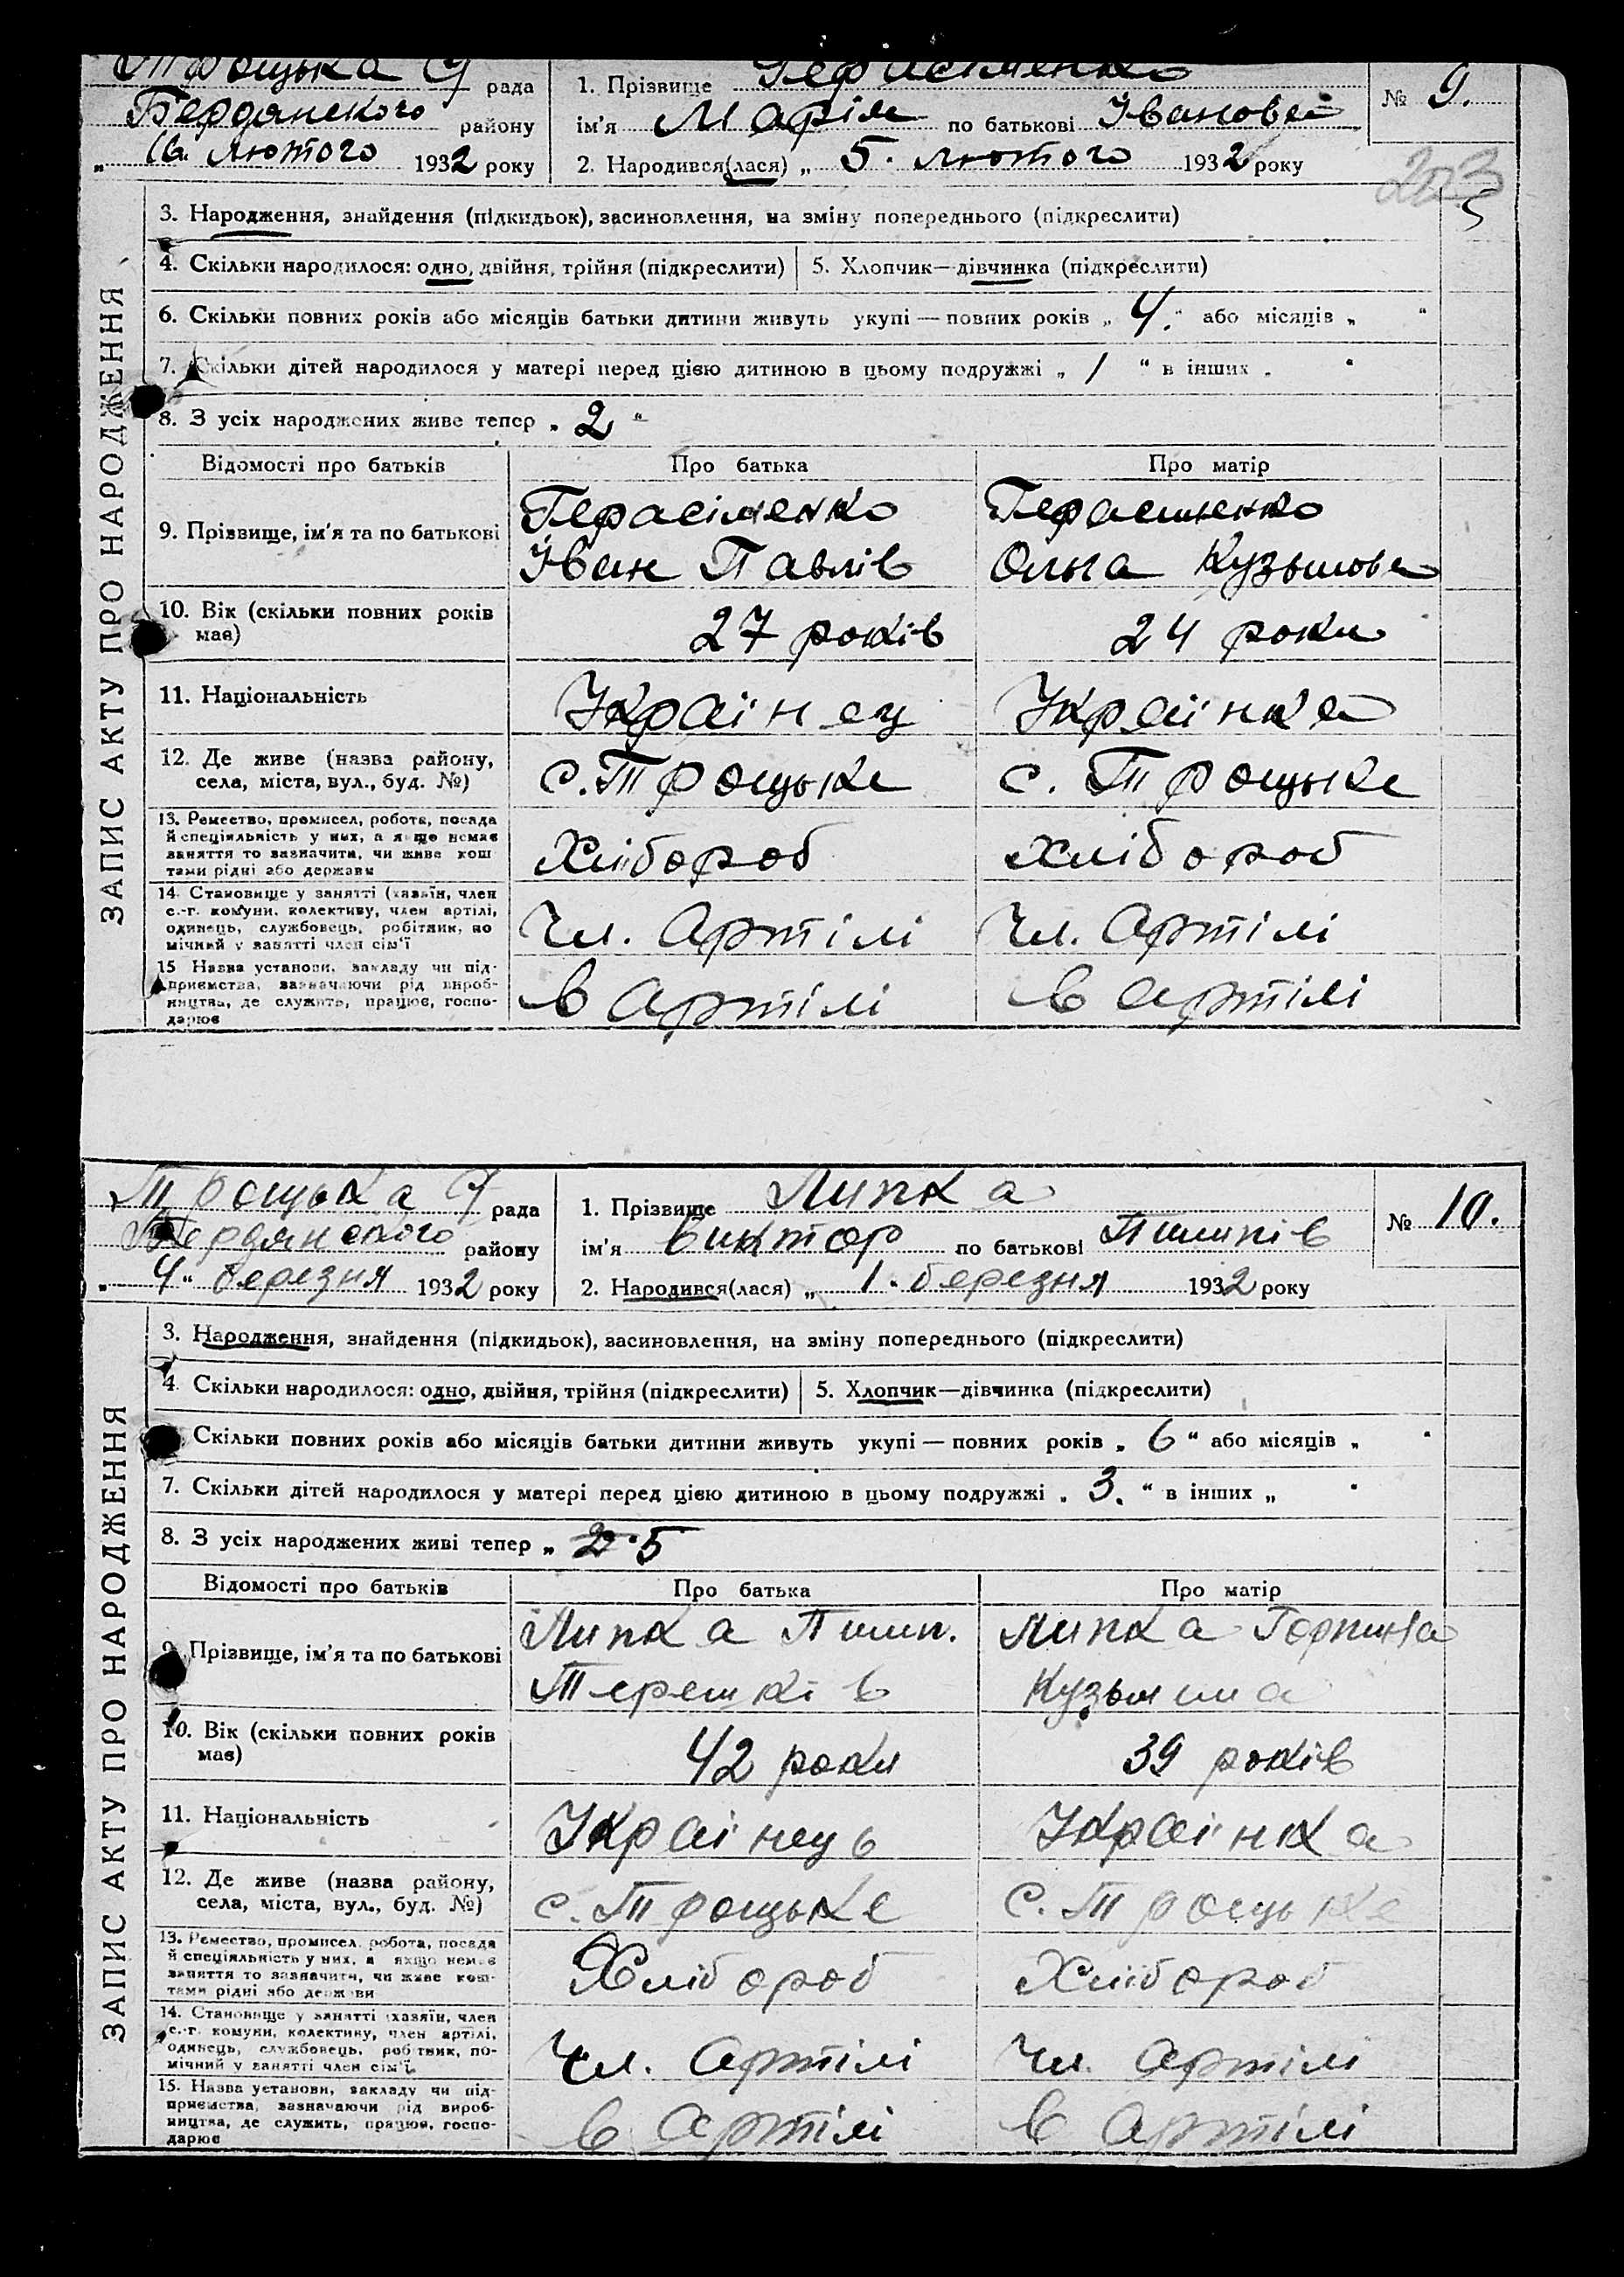 Троцька С/ рада
Бердянского району
„ 16. лютого 1932 року
1. Прізвище Герасименко
ім'я Марія по батькові Івановна
2. Народився(лася) „ 5. лютого 1932 року
№ 9.
203
ЗАПИС АКТУ ПРО НАРОДЖЕННЯ
3. Народження, знайдення (підкидьок), засиновлення, на зміну попереднього (підкреслити)
4. Скільки народилося: одно, двійня, трійня (підкреслити) 5. Хлопчик—дівчинка (підкреслити)
6. Скільки повних років або місяців батьки дитини живуть укупі — повних років „ 4. “ або місяців „ “
7. Скільки дітей народилося у матері перед цією дитиною в цьому подружжі „ 1 “ в інших „ “
8. З усіх народжених живе тепер „ 2 “
Відомості про батьків Про батька Про матір
9. Прізвище, ім'я та по батькові
Герасіменко Герасименко
Іван Павлів Ольга Кузьмовна
10. Вік (скільки повних років має) 27 років 24 роки
11. Національність Українец Українка
12. Де живе (назва району, села, міста, вул., буд. №) с. Троцьке с. Троцьке
13. Ремество, промисел, робота, посада
й спеціяльність у них, а якщо немає
заняття то зазначити, чи живе кош
тами рідні або держави
Хлібороб Хлібороб
14. Становище у занятті (хазяїн, член
с.-г. комуни, колективу, член артілі,
одинець, службовець, робітник, по
мічний у занятті член сім'ї
Чл. Артілі Чл. Артілі
15 Назва установи, закладу чи під-
приємства, зазначаючи рід вироб-
ництва, де служить, працює, госпо-
дарює
в Артілі в артілі
Троцька С/ рада
Бердянского району
„ 4 “ березня 1932 року
1. Прізвище Липка
ім'я Виктор по батькові Пилипів
2. Народився(лася) „ 1. березня 1932 року
№ 10.
ЗАПИС АКТУ ПРО НАРОДЖЕННЯ
3. Народження, знайдення (підкидьок), засиновлення, на зміну попереднього (підкреслити)
4. Скільки народилося: одно, двійня, трійня (підкреслити) 5. Хлопчик—дівчинка (підкреслити)
Скільки повних років або місяців батьки дитини живуть укупі — повних років „ 6 “ або місяців „ “
7. Скільки дітей народилося у матері перед цією дитиною в цьому подружжі „ 3. “ в інших „ “
8. З усіх народжених живі тепер „ 5
Відомості про батьків Про батька Про матір
9. Прізвище, ім'я та по батькові
Липка Пилип. Липка Горпина
Терешків Кузьмина
10. Вік (скільки повних років має) 42 роки 39 років
11. Національність Українець Українка
12. Де живе (назва району, села, міста, вул., буд. №) с. Троцьке с. Троцьке
13. Ремество, промисел, робота, посада
й спеціяльність у них, а якщо немає
заняття то зазначити, чи живе кош-
тами рідні або держави
Хлібороб Хлібороб
14. Становище у занятті (хазяїн, член
с.-г. комуни, колективу, член артілі,
одинець, службовець, робітник, по-
мічний у занятті член сім'ї
Чл. артілі Чл. артілі
15. Назва установи, закладу чи під-
приємства, зазначаючи рід вироб-
ництва, де служить, працює, госпо-
дарює
в артілі в артілі